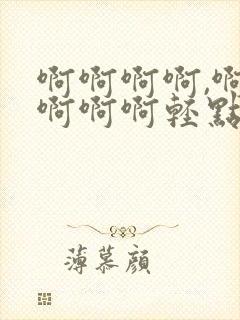 啊啊啊啊,啊
啊啊啊輕點
薄慕顔